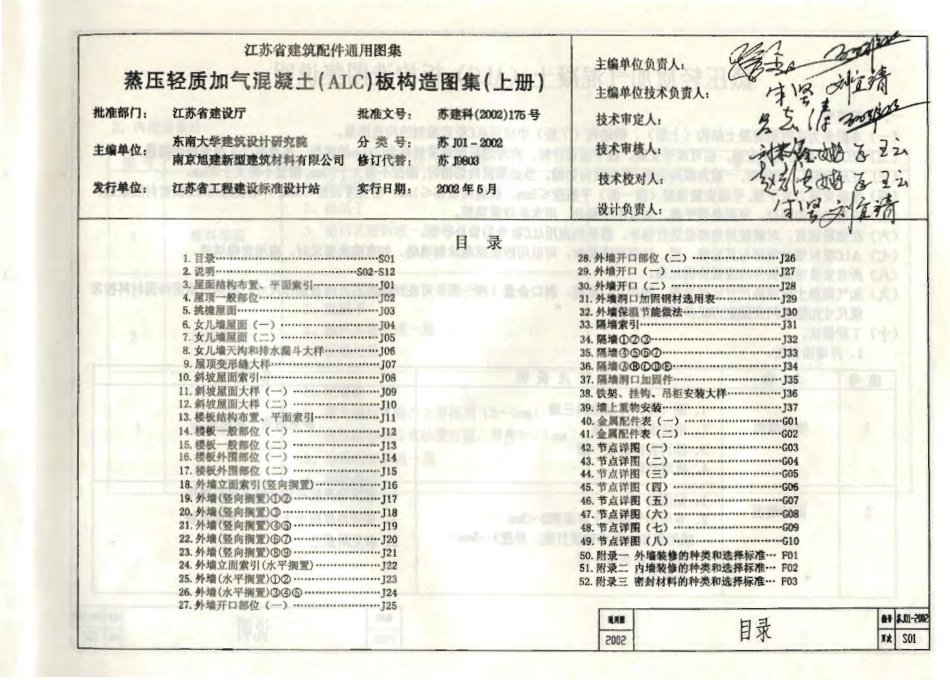 江苏省建筑配件通用图集
蒸压轻质加气混凝土(ALC)板构造图集(上册)
批准部门： 江苏省建设厅 批准文号： 苏建科(2002)175号
主编单位： 东南大学建筑设计研究院 分 类 号： 苏 J01-2002
南京旭建新型建筑材料有限公司 修订代替： 苏 J9803
发行单位： 江苏省工程建设标准设计站 实行日期： 2002 年 5 月
主编单位负责人：
主编单位技术负责人：
技术审定人：
技术审核人：
技术校对人：
设计负责人：
目 录
1. 目录……S01
2. 说明……S02-S12
3. 屋面结构布置、平面索引……J01
4. 屋顶一般部位……J02
5. 挑檐屋面……J03
6. 女儿墙屋面（一）……J04
7. 女儿墙屋面（二）……J05
8. 女儿墙天沟和排水漏斗大样……J06
9. 屋顶变形缝大样……J07
10. 斜坡屋面索引……J08
11. 斜坡屋面大样（一）……J09
12. 斜坡屋面大样（二）……J10
13. 楼板结构布置、平面索引……J11
14. 楼板一般部位（一）……J12
15. 楼板一般部位（二）……J13
16. 楼板外围部位（一）……J14
17. 楼板外围部位（二）……J15
18. 外墙立面索引(竖向搁置)……J16
19. 外墙(竖向搁置)①②……J17
20. 外墙(竖向搁置)③……J18
21. 外墙(竖向搁置)④⑤……J19
22. 外墙(竖向搁置)⑥⑦……J20
23. 外墙(竖向搁置)⑧⑨……J21
24. 外墙立面索引(水平搁置)……J22
25. 外墙(水平搁置)①②……J23
26. 外墙(水平搁置)③④⑤……J24
27. 外墙开口部位（一）……J25
28. 外墙开口部位（二）……J26
29. 外墙开口（一）……J27
30. 外墙开口（二）……J28
31. 外墙洞口加固钢材选用表……J29
32. 外墙保温节能做法……J30
33. 隔墙索引……J31
34. 隔墙①②③……J32
35. 隔墙④⑤⑥⑦……J33
36. 隔墙ⒶⒷⒸⒹⒺ……J34
37. 隔墙洞口加固件……J35
38. 铁架、挂钩、吊柜安装大样……J36
39. 墙上重物安装……J37
40. 金属配件表（一）……G01
41. 金属配件表（二）……G02
42. 节点详图（一）……G03
43. 节点详图（二）……G04
44. 节点详图（三）……G05
45. 节点详图（四）……G06
46. 节点详图（五）……G07
47. 节点详图（六）……G08
48. 节点详图（七）……G09
49. 节点详图（八）……G10
50. 附录一 外墙装修的种类和选择标准… F01
51. 附录二 内墙装修的种类和选择标准… F02
52. 附录三 密封材料的种类和选择标准… F03
通用图 目录 编号 苏J01-2002
2002 页次 S01